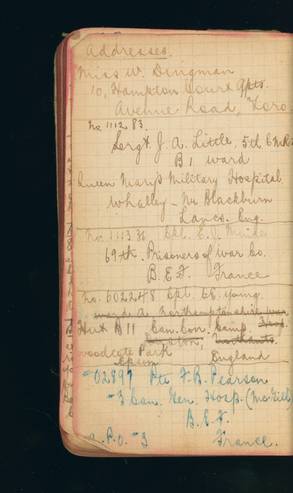 Addresses.
Miss W. Dingman
10, Hampton Court Apts.
Avenue Road, Toro
No 111283.
Sergt J. A. Little, 5th C.M.R.
B1 ward
Queen Mary's Military Hospital
Whalley - Nr Blackburn
Lancs. Eng.
No. 111331 Cpl. E. V.
69th. Prisoners of War Co.
B.E.F. France
No. 602248 Cpl G.B. Young.
Ward A. Northamptonshire War
Hut B11 Can. Con. Camp, Hosp.
Northants.
Woodcote Park England
Epsom
02897 Pte F. R. Pearson
3 Can. Gen. Hosp. (McGill)
B.E.F.
A.P.O. - 3 France.